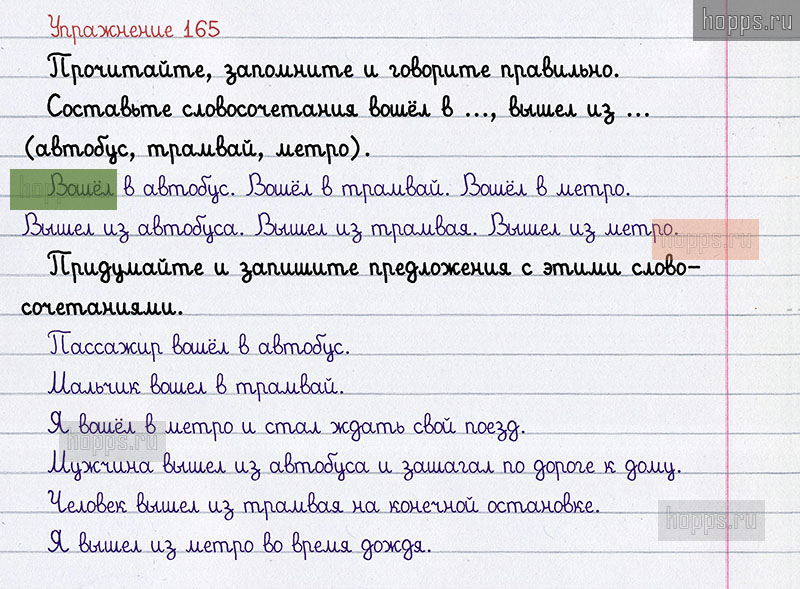 hopps.ru
Упражнение 165
Прочитайте, запомните и говорите правильно.
Составьте словосочетания вошёл в ..., вышел из ...
(автобус, трамвай, метро).
Вошёл в автобус. Вошёл в трамвай. Вошёл в метро.
Вышел из автобуса. Вышел из трамвая. Вышел из метро.
Придумайте и запишите предложения с этими слово-
сочетаниями.
Пассажир вошёл в автобус.
Мальчик вошел в трамвай.
Я вошёл в метро и стал ждать свой поезд.
Мужчина вышел из автобуса и зашагал по дороге к дому.
Человек вышел из трамвая на конечной остановке.
Я вышел из метро во время дождя.
hopps.ru
hopps.ru
hopps.ru
hopps.ru